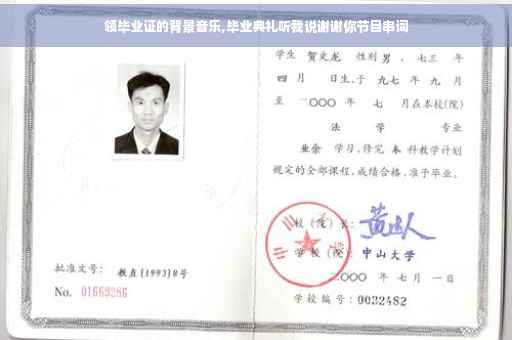 领毕业证的背景音乐,毕业典礼听我说谢谢你节目串词
学生 贺文龙 性别 男 、七三 年
四 月 日生,于 九七 年 九 月
至 二〇〇〇 年 七 月在本校(院)
法 学 专业
业余 学习,修完 本 科教学计划
规定的全部课程,成绩合格,准予毕业。
校(院)长:
学校(院): 中山大学
二〇〇〇 年 七 月 一 日
学校编号: 0032482
批准文号: 教直[1993]8号
No. 01669286